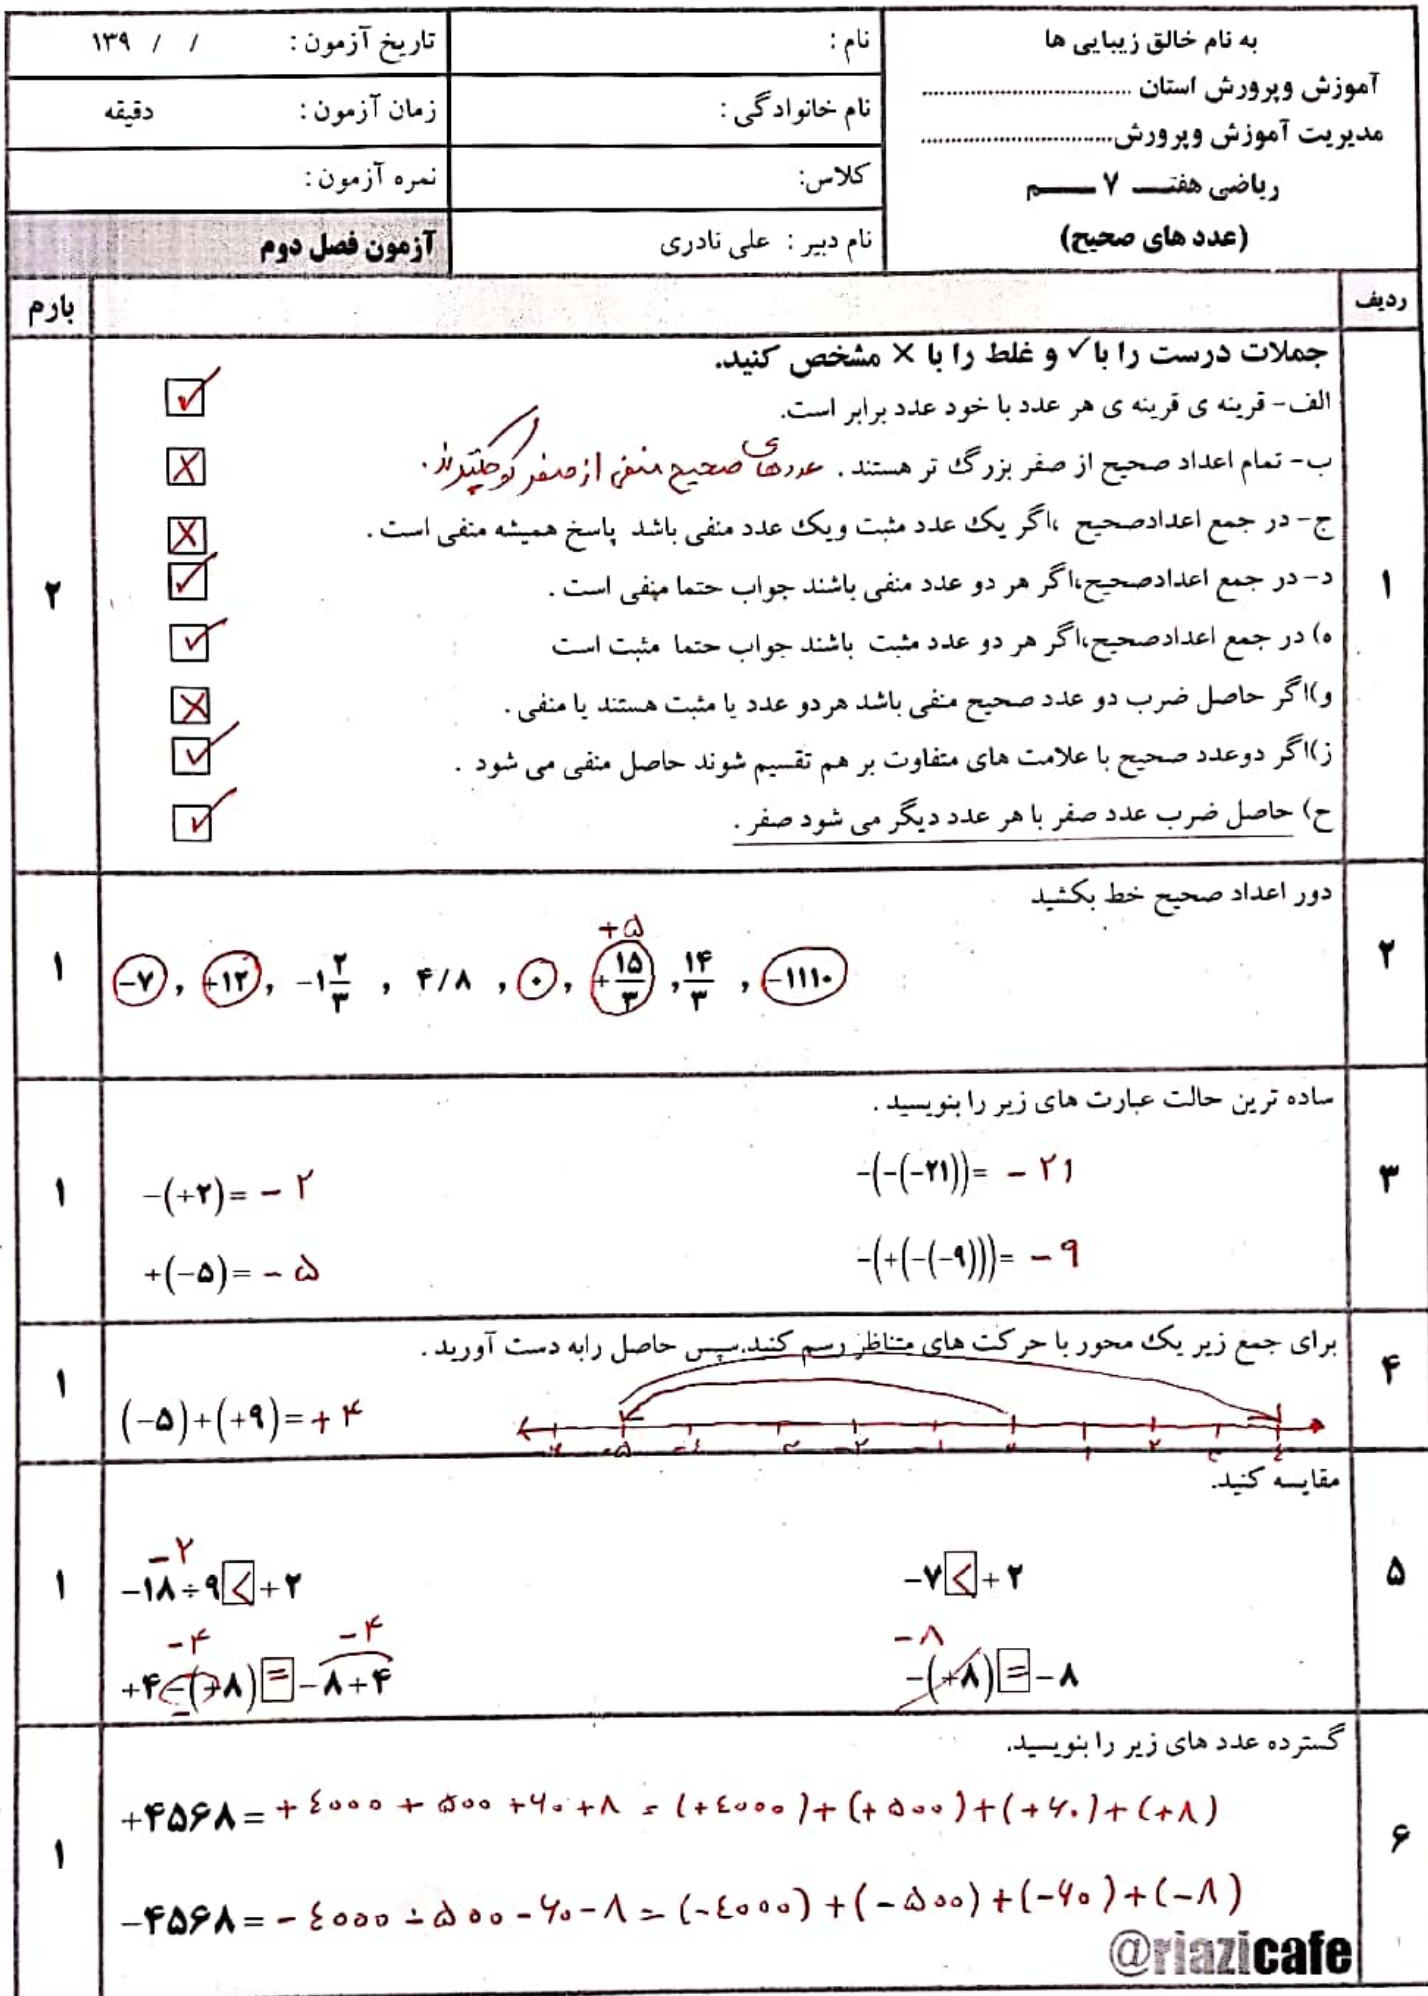 به نام خالق زیبایی ها
آموزش وپرورش استان ................................
مدیریت آموزش وپرورش..............................
ریاضی هفتـــ ۷ ــــم
(عدد های صحیح)
نام :
نام خانوادگی :
کلاس:
نام دبیر : علی نادری
تاریخ آزمون : / / ۱۳۹
زمان آزمون : دقیقه
نمره آزمون :
آزمون فصل دوم
ردیف
بارم
۱
جملات درست را با ✓ و غلط را با × مشخص کنید.
الف- قرینه ی قرینه ی هر عدد با خود عدد برابر است. ✓
ب- تمام اعداد صحیح از صفر بزرگ تر هستند . عددهای صحیح منفی از صفر کوچکترند . ×
ج- در جمع اعدادصحیح ،اگر یک عدد مثبت ویک عدد منفی باشد پاسخ همیشه منفی است . ×
د- در جمع اعدادصحیح،اگر هر دو عدد منفی باشند جواب حتما منفی است . ✓
ه) در جمع اعدادصحیح،اگر هر دو عدد مثبت باشند جواب حتما مثبت است ✓
و)اگر حاصل ضرب دو عدد صحیح منفی باشد هردو عدد یا مثبت هستند یا منفی . ×
ز)اگر دوعدد صحیح با علامت های متفاوت بر هم تقسیم شوند حاصل منفی می شود . ✓
ح) حاصل ضرب عدد صفر با هر عدد دیگر می شود صفر . ✓
۲
۲
دور اعداد صحیح خط بکشید
+۵
-۷ , +۱۲ , -۱ ۲/۳ , ۴/۸ , ۰ , +۱۵/۳ , ۱۴/۳ , -۱۱۱۰
۱
۳
ساده ترین حالت عبارت های زیر را بنویسید .
-(+۲)= - ۲
-(-(-۲۱))= - ۲۱
+(-۵)= - ۵
-(+(-(-۹)))= - ۹
۱
۴
برای جمع زیر یک محور با حرکت های متناظر رسم کنند.سپس حاصل رابه دست آورید .
(-۵)+(+۹)=+ ۴
۱
۵
مقایسه کنید.
-۲
-۱۸÷۹ < +۲
-۷ < +۲
-۴ -۴
+۴-(+۸) = -۸+۴
-
-۸
-(+۸) = -۸
۱
۶
گسترده عدد های زیر را بنویسید.
+۴۵۶۸= +۴۰۰۰ + ۵۰۰ +۶۰ +۸ = (+۴۰۰۰)+(+۵۰۰)+(+۶۰)+(+۸)
-۴۵۶۸= -۴۰۰۰ -۵۰۰ -۶۰-۸ = (-۴۰۰۰)+(-۵۰۰)+(-۶۰)+(-۸)
۱
@riazicafe